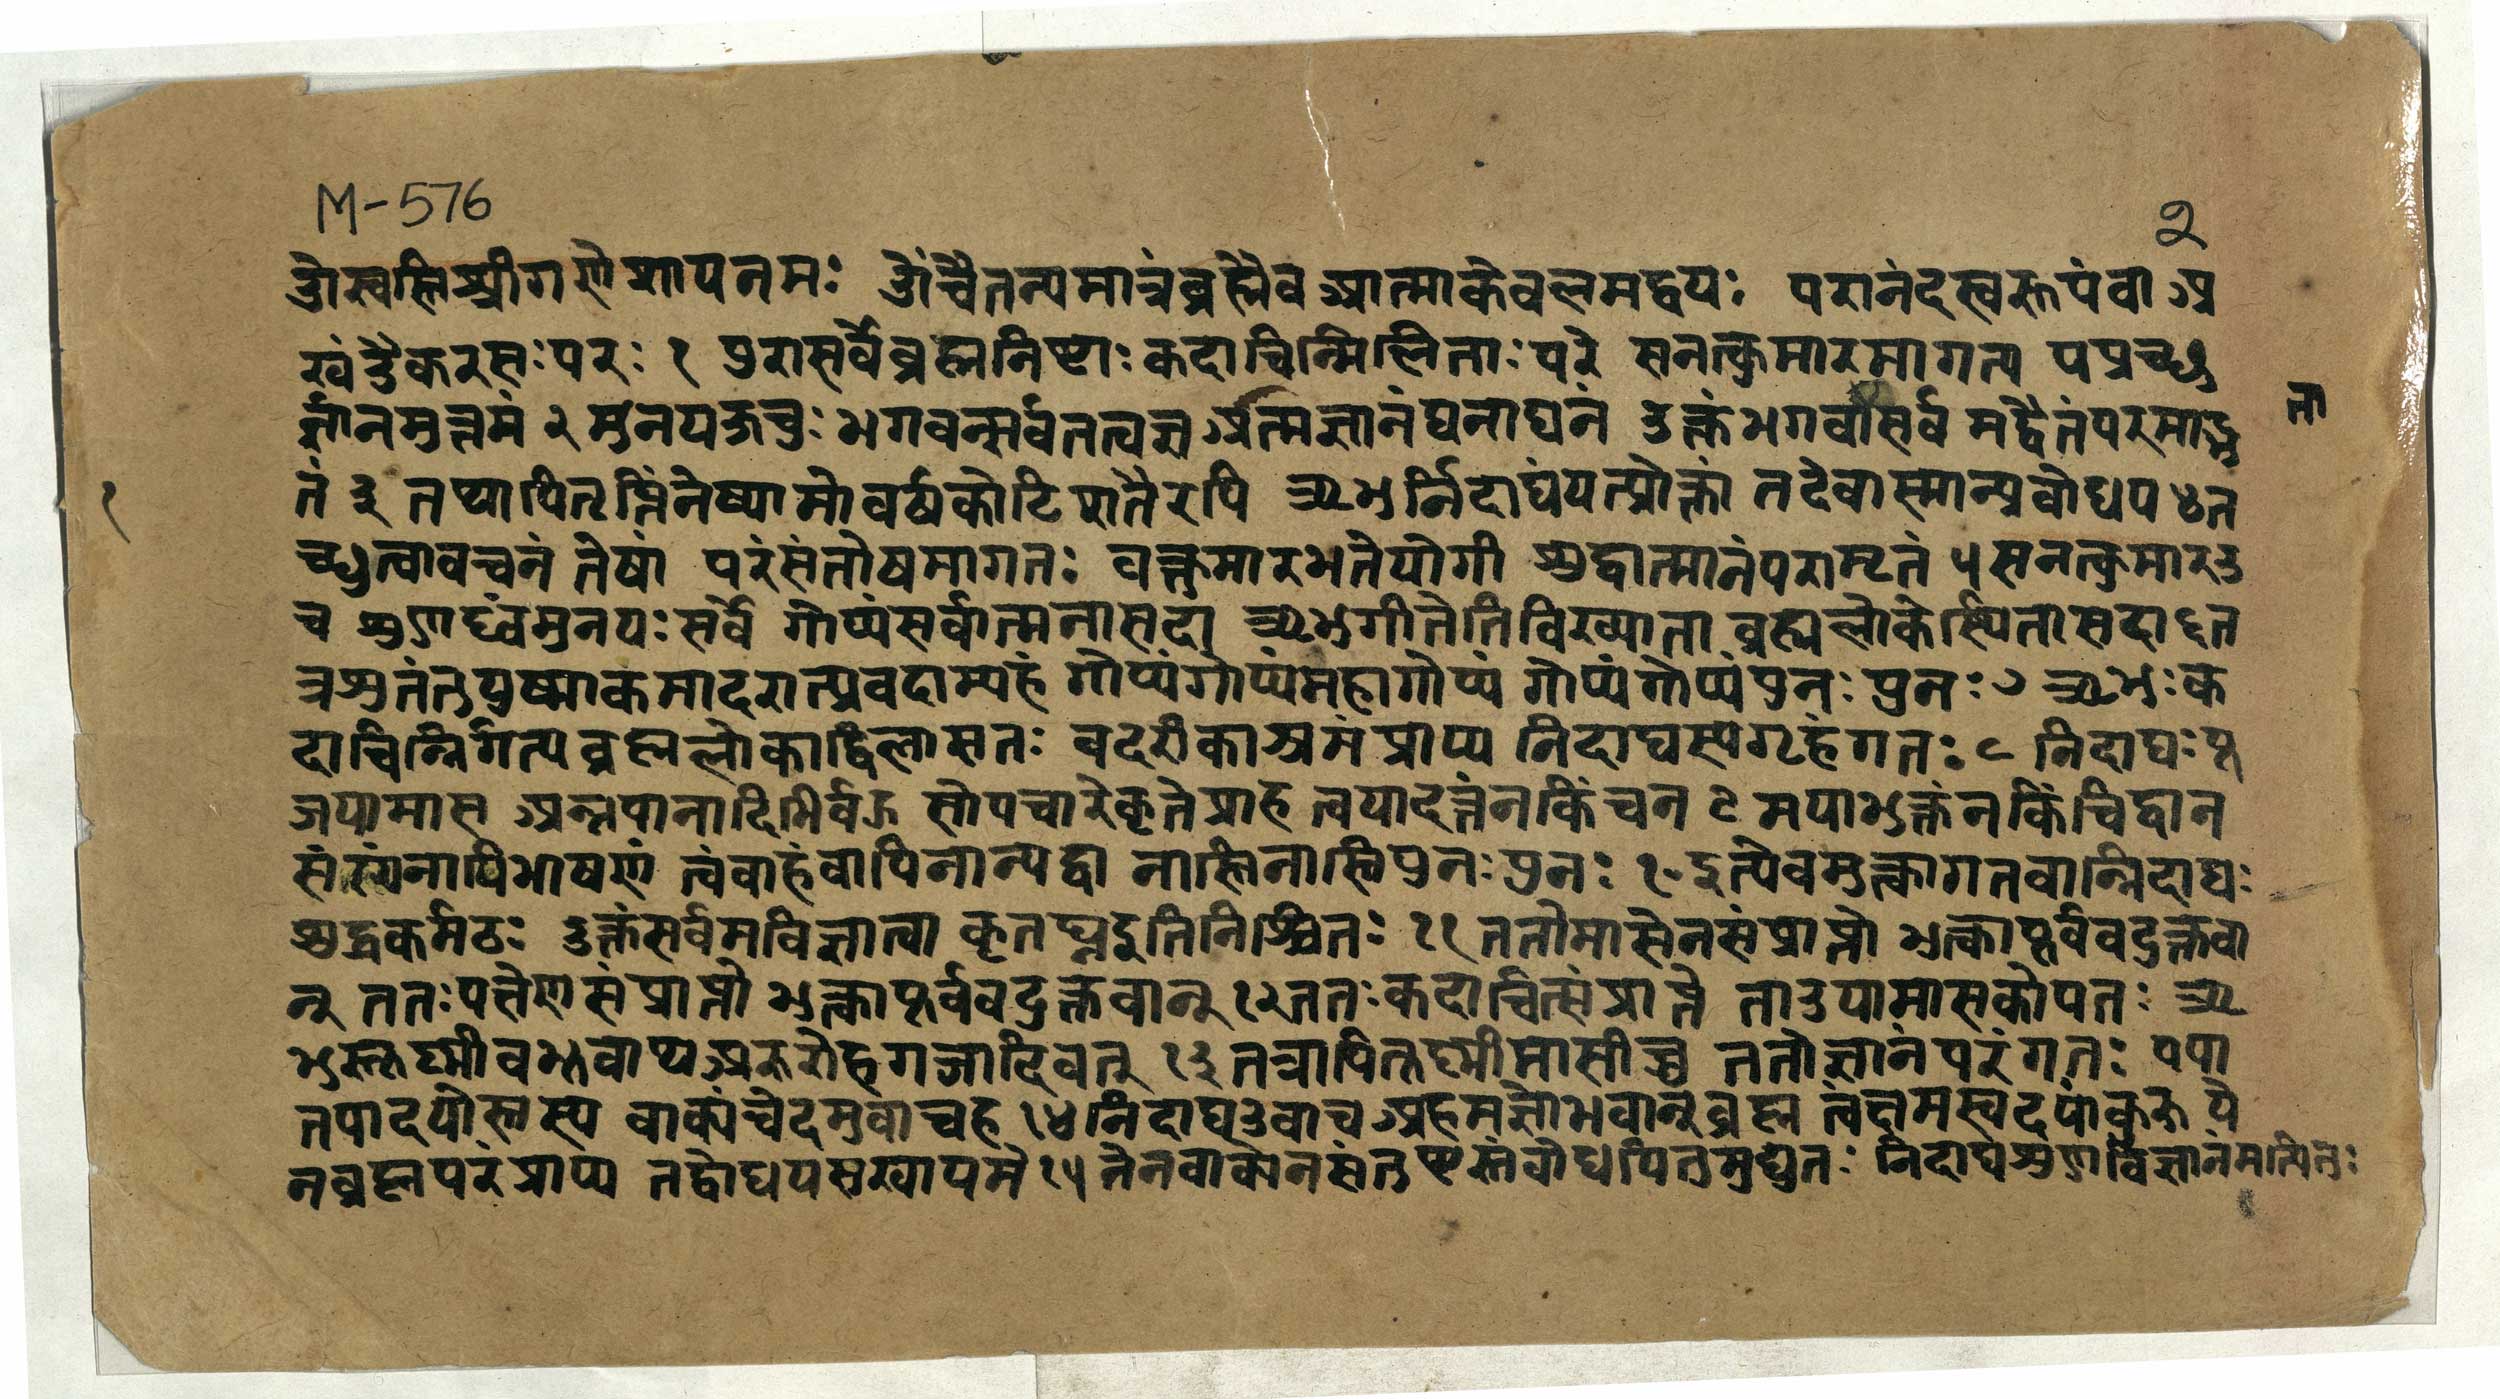 M-576
२
ॐस्वस्तिश्रीगणेशायनमः ॐचैतन्यमात्रंब्रह्मैवआत्माकेवलमद्वयः परानंदस्वरूपंवाअ
खंडैकरसःपरः १ पुरासर्वेब्रह्मनिष्टाःकदाचिन्मिलिताःपरे सनत्कुमारमागत्य पप्रच्छु
र्ज्ञानमुत्तमं २ मुनयऊचुः भगवन्सर्वतत्वज्ञ अत्मज्ञानंघनाघनं उक्तंभगवासर्व मद्वैतंपरमाद्भु
ज्ञा
तं ३ तथापितृप्तिंनेष्यामोवर्षकोटिशतैरपि ऋभुर्निदाघंयत्प्रोक्तां तदेवास्मान्प्रबोधय ४ त
१
च्छ्रुत्वावचनं तेषां परंसंतोषमागतः वक्तुमारभतेयोगी शुद्धात्मानंपरामृतं ५ सनत्कुमारउ
च शृणुध्वंमुनयःसर्वे गोप्यंसर्वात्मनासदा ऋभुगीतेतिविख्याता ब्रह्मलोकेस्थितासदा ६ त
त्रश्रुतंतुयुष्माकमादरात्प्रवदाम्यहं गोप्यंगोप्यंमहागोप्यं गोप्यंगोप्यंपुनःपुनः ७ ऋभुःक
दाचिन्निर्गत्यब्रह्मलोकाद्विलासतः बदरीकाश्रमंप्राप्य निदाघस्यगृहंगतः ८ निदाघःपू
जयामास अन्नपानादिभिर्वऊ सोपचारेकृतेप्राह त्वयादत्तंनकिंचन ९ मयाभुक्तंनकिंचिद्वान
संस्यंनापिभाषणं त्वंवाहंवापिनान्यद्वा नास्तिनास्तिपुनःपुनः १० इत्येवमुक्त्वागतवान्निदाघः
शुद्धकर्मठः उक्तंसर्वमविज्ञात्वा कृतघ्नइतिनिश्चितः ११ ततोमासेनसंप्राप्तो भुक्त्वापूर्ववदुक्तवा
न् ततःपक्षेणसंप्राप्तो भुक्त्वापूर्ववदुक्तवान् १२ ततःकदाचित्संप्राप्तै ताडयामासकोपतः ऋ
भुस्तूष्णीबभूवाथ अरुरोहगजादिवत् १३ तत्रापितूष्णीमासीच्च ततोज्ञानंपरंगतः पपा
तपादयोस्तस्य वाक्यंचेदमुवाचह १४ निदाघउवाच अहमज्ञोभवान्ब्रह्म त्वंक्षमस्वदयांकुरु ये
नब्रह्मपरंप्राप्य तद्बोधयसखायमे १५ तेनवाक्येनसंतुष्टस्तंबोधयितुमुद्यतः निदाघशृणुविज्ञानंमत्पितुः